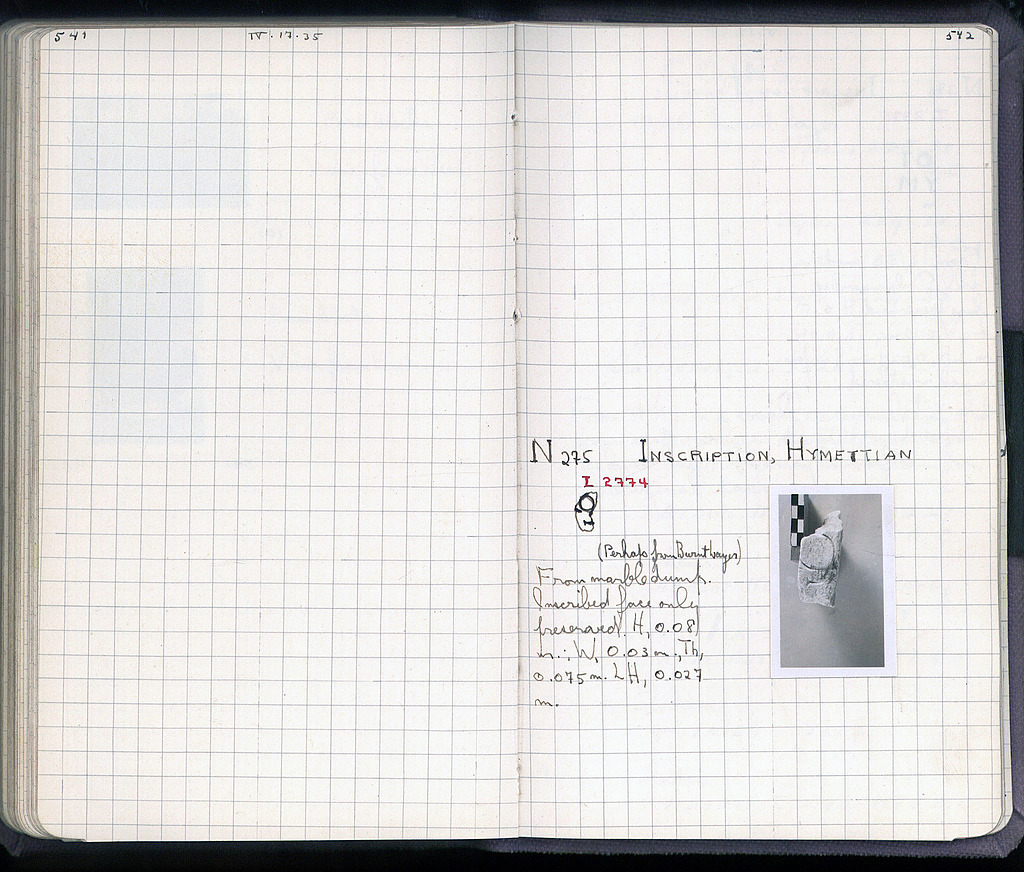 541
IV.17.35
542
N 275 INSCRIPTION, HYMETTIAN
I 2774
(Perhaps from Burnt layer)
From marble dump.
Inscribed face only
preserved. H, 0.08
m.; W, 0.03 m., Th,
0.075 m. LH, 0.027
m.